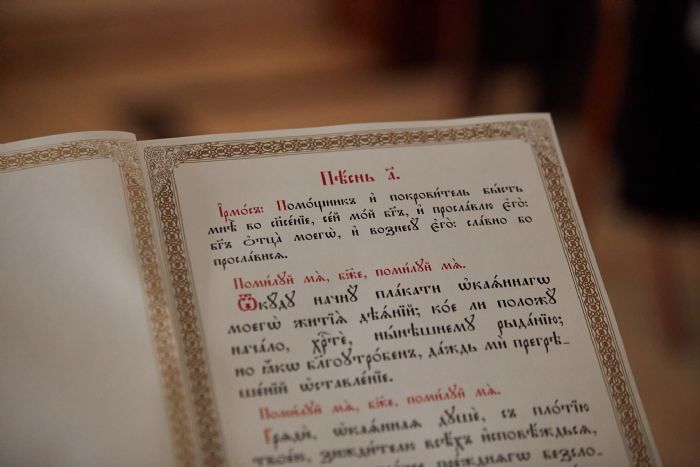 Пѣ́снь а҃.
І҆рмо́съ: Помо́щникъ и҆ покрови́тель бы́сть
мнѣ̀ во сп҃се́нїе, се́й мо́й бг҃ъ, и҆ просла́влю є҆го̀:
бг҃ъ ѻ҆тца̀ моегѡ̀, и҆ вознесꙋ̀ є҆го̀: сла́вно бо
просла́висѧ.
Поми́лꙋй мѧ̀, бж҃е, поми́лꙋй мѧ̀.
Ѿкꙋ́дꙋ начнꙋ̀ пла́кати ѡ҆каѧ́ннагѡ
моегѡ̀ житїѧ̀ дѣѧ́нїй; ко́е ли положꙋ̀
нача́ло, хрⷭ҇тѐ, ны́нѣшнемꙋ рыда́нїю;
но ꙗ҆́кѡ бл҃гоꙋтро́бенъ, да́ждь мѝ прегрѣ-
ше́нїй ѡ҆ставле́нїе.
Поми́лꙋй мѧ̀, бж҃е, поми́лꙋй мѧ̀.
Грѧдѝ, ѡ҆каѧ́ннаѧ дꙋшѐ, съ пло́тїю
твое́ю, зижди́телю всѣ́хъ и҆сповѣ́ждьсѧ,
пре́жнѧгѡ безсло-